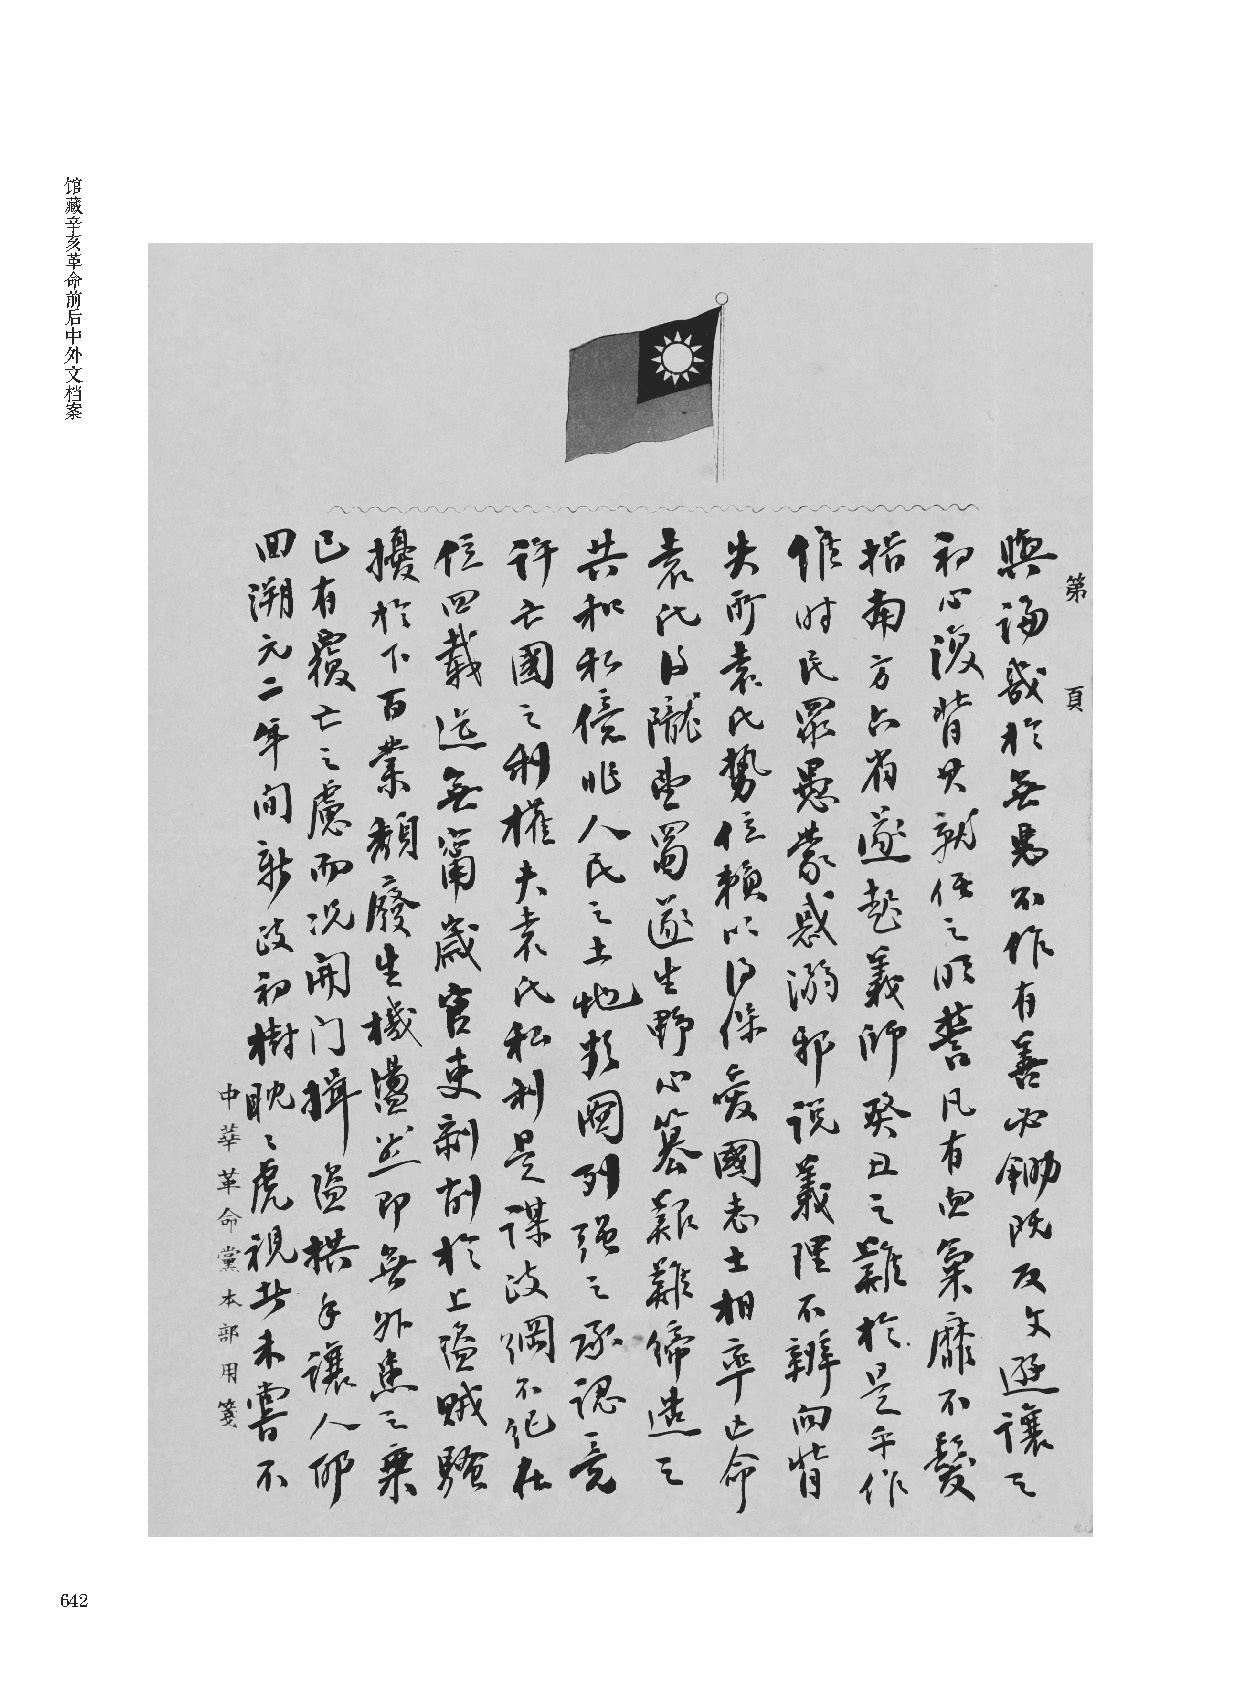 馆藏辛亥革命前后中外文档案
第 頁
於無惡不作有善必鋤既反文遜讓之
初心復背其就任之誓凡有血氣靡不髮
指南方六省遂起義師癸丑之難於是乎作
惟时民眾愚蒙惑溺邪说義理不辨向背
失所袁氏勢位賴以得保愛國志士相率亡命
袁氏得隴望蜀遂生野心篡艱難締造之
共和私億兆人民之土地圖列强之承認竟
许亡國之利權夫袁氏私利是謀政綱不紀在
位四載迄無甯歲官吏剝削於上盜賊騷
擾於下百業頹廢生機盪然即無外患之乘
已有覆亡之慮而况開门揖盜拱手讓人耶
回溯元二年间新政初樹眈〻虎視者未嘗不
中華革命黨本部用箋
642